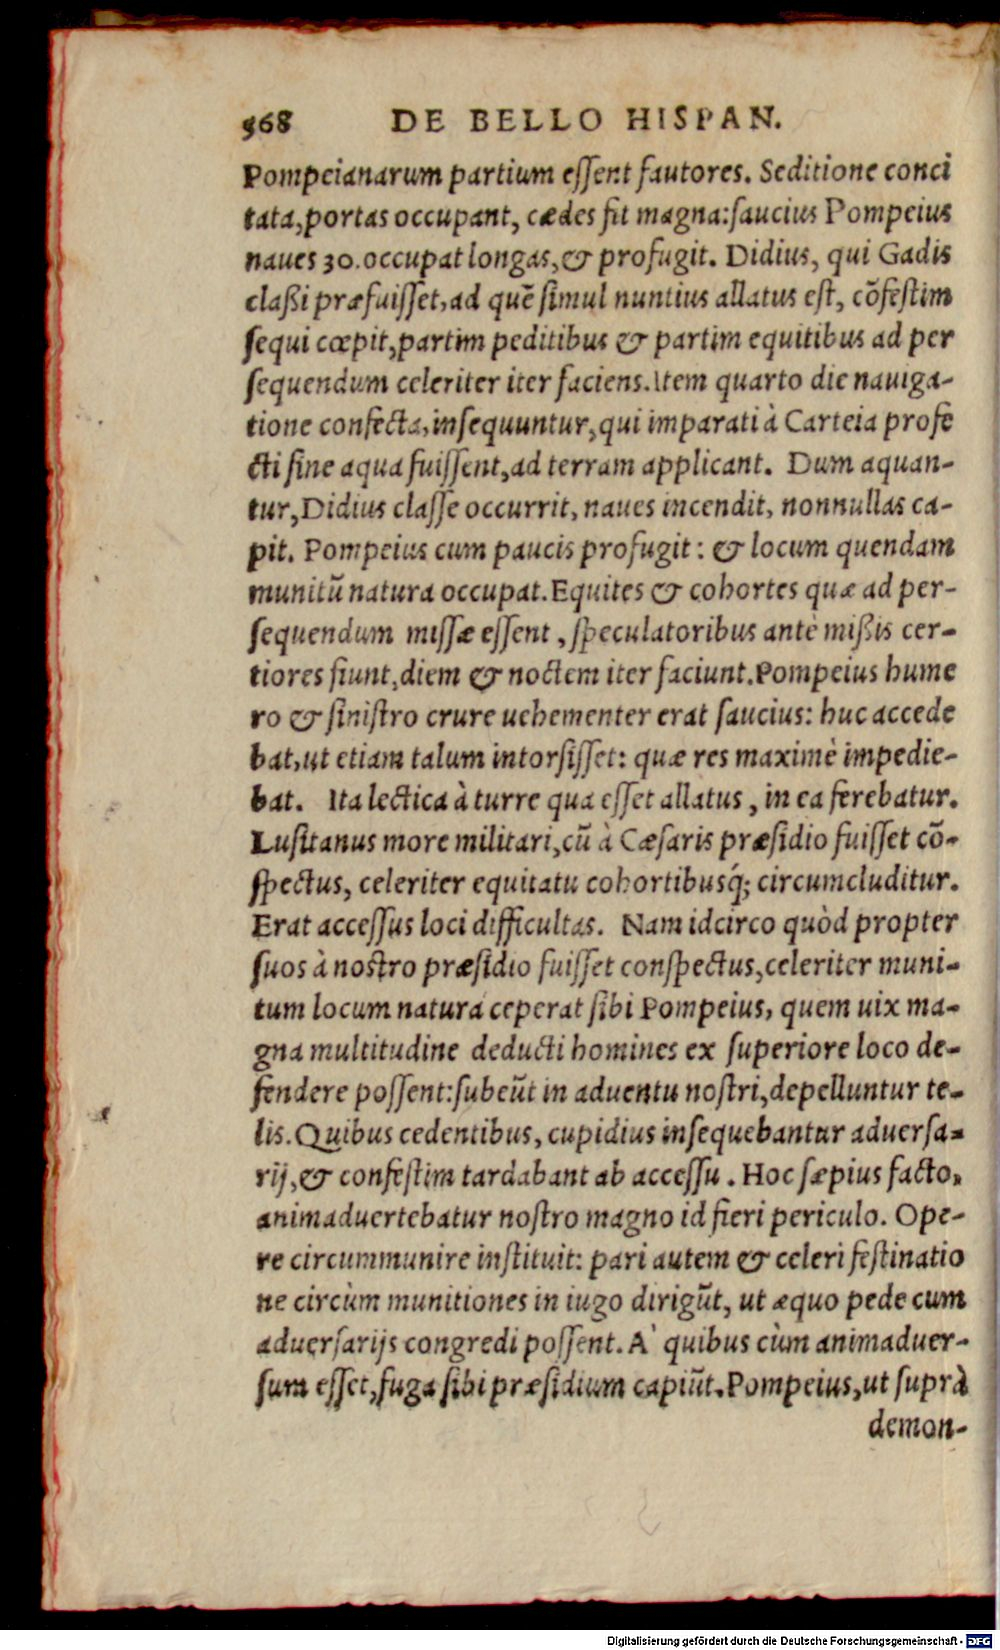 568 DE BELLO HISPAN.
Pompeianarum partium eſſent fautores. Seditione conci
tata,portas occupant, cædes fit magna:ſaucius Pompeius
naues 30.occupat longas,& profugit. Didius, qui Gadis
claßi præfuiſſet,ad quē ſimul nuntius allatus eſt, cōfeſtim
ſequi cœpit,partim peditibus & partim equitibus ad per
ſequendum celeriter iter faciens.Item quarto die nauiga-
tione confecta,inſequuntur,qui imparati à Carteia profe
cti ſine aqua fuiſſent,ad terram applicant. Dum aquan-
tur,Didius claſſe occurrit, naues incendit, nonnullas ca-
pit. Pompeius cum paucis profugit : & locum quendam
munitū natura occupat.Equites & cohortes quæ ad per-
ſequendum miſſæ eſſent , ſpeculatoribus antè mißis cer-
tiores fiunt,diem & noctem iter faciunt.Pompeius hume
ro & ſiniſtro crure uehementer erat ſaucius: huc accede
bat,ut etiam talum intorſiſſet: quæ res maximè impedie-
bat. Ita lectica à turre qua eſſet allatus , in ea ferebatur.
Luſitanus more militari,cū à Cæſaris præſidio fuiſſet cō-
ſpectus, celeriter equitatu cohortibusq́; circumcluditur.
Erat acceſſus loci difficultas. Nam idcirco quòd propter
ſuos à noſtro præſidio fuiſſet conſpectus,celeriter muni-
tum locum natura ceperat ſibi Pompeius, quem uix ma-
gna multitudine deducti homines ex ſuperiore loco de-
fendere poſſent:ſubeūt in aduentu noſtri,depelluntur te-
lis.Quibus cedentibus, cupidius inſequebantur aduerſa-
rij,& confeſtim tardabant ab acceſſu . Hoc ſæpius facto,
animaduertebatur noſtro magno id fieri periculo. Ope-
re circummunire inſtituit: pari autem & celeri feſtinatio
ne circùm munitiones in iugo dirigūt, ut æquo pede cum
aduerſarijs congredi poſſent. A` quibus cùm animaduer-
ſum eſſet,fuga ſibi præſidium capiūt.Pompeius,ut ſuprà
demon-
Digitalisierung gefördert durch die Deutsche Forschungsgemeinschaft - DFG